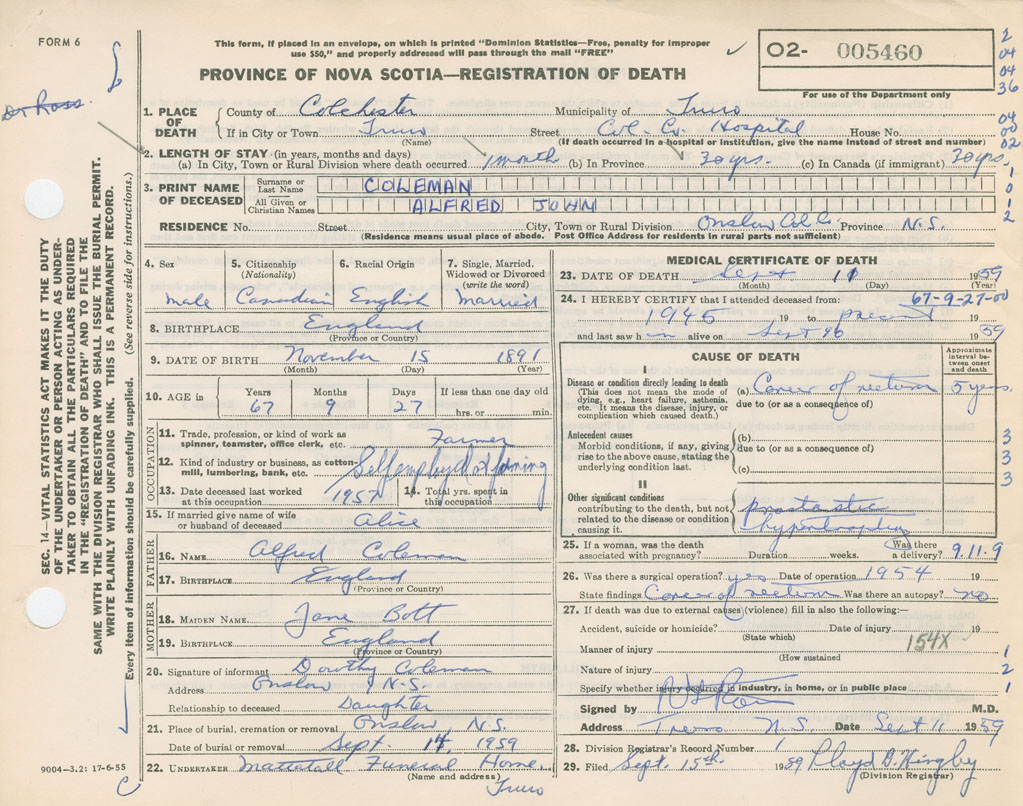 FORM 6
This form, if placed in an envelope, on which is printed "Dominion Statistics—Free, penalty for improper
use $50," and properly addressed will pass through the mail "FREE"
PROVINCE OF NOVA SCOTIA—REGISTRATION OF DEATH
O2- 005460
For use of the Department only
2
04
04
36
04
00
02
1
0
1
2
Dr Ross.
SEC. 14—VITAL STATISTICS ACT MAKES IT THE DUTY
OF THE UNDERTAKER OR PERSON ACTING AS UNDER-
TAKER TO OBTAIN ALL THE PARTICULARS REQUIRED
IN THE "REGISTRATION OF DEATH" AND TO FILE THE
SAME WITH THE DIVISION REGISTRAR WHO SHALL ISSUE THE BURIAL PERMIT.
WRITE PLAINLY WITH UNFADING INK. THIS IS A PERMANENT RECORD.
Every item of information should be carefully supplied. (See reverse side for instructions.)
1. PLACE OF DEATH County of Colchester Municipality of Truro
If in City or Town Truro Street Col. Co. Hospital House No.
(Name) (If death occurred in a hospital or institution, give the name instead of street and number)
2. LENGTH OF STAY (in years, months and days)
(a) In City, Town or Rural Division where death occurred 1 month (b) In Province 30 yrs. (c) In Canada (if immigrant) 30 yrs.
3. PRINT NAME OF DECEASED Surname or Last Name COLEMAN
All Given or Christian Names ALFRED JOHN
RESIDENCE No. Street City, Town or Rural Division Onslow Col Co. Province N.S.
(Residence means usual place of abode. Post Office Address for residents in rural parts not sufficient)
4. Sex 5. Citizenship (Nationality) 6. Racial Origin 7. Single, Married, Widowed or Divorced (write the word)
male Canadian English Married
8. BIRTHPLACE England
(Province or Country)
9. DATE OF BIRTH November 15 1891
(Month) (Day) (Year)
10. AGE in Years Months Days If less than one day old
67 9 27 hrs. or min.
OCCUPATION
11. Trade, profession, or kind of work as spinner, teamster, office clerk, etc. Farmer
12. Kind of industry or business, as cotton-mill, lumbering, bank, etc. Self employed at farming
13. Date deceased last worked at this occupation 1957 14. Total yrs. spent in this occupation
15. If married give name of wife or husband of deceased Alice
FATHER
16. NAME Alfred Coleman
17. BIRTHPLACE England
(Province or Country)
MOTHER
18. MAIDEN NAME Jane Bott
19. BIRTHPLACE England
(Province or Country)
20. Signature of informant Dorothy Coleman
Address Onslow N.S.
Relationship to deceased Daughter
21. Place of burial, cremation or removal Onslow N.S.
Date of burial or removal Sept. 14, 1959
22. UNDERTAKER Mattatall Funeral Home,
(Name and address)
Truro
9004—3.2: 17-6-55
C
MEDICAL CERTIFICATE OF DEATH
23. DATE OF DEATH Sept 11 1959
(Month) (Day) (Year)
24. I HEREBY CERTIFY that I attended deceased from: 67-9-27-00
1945 19 to present 19
and last saw h im alive on Sept 1959
CAUSE OF DEATH
Approximate interval between onset and death
I
Disease or condition directly leading to death
(This does not mean the mode of dying, e.g., heart failure, asthenia, etc. It means the disease, injury, or complication which caused death.)
(a) Cancer of rectum 5 years
due to (or as a consequence of)
Antecedent causes
Morbid conditions, if any, giving rise to the above cause, stating the underlying condition last.
(b)
due to (or as a consequence of)
(c)
3
3
3
3
II
Other significant conditions contributing to the death, but not related to the disease or condition causing it.
prostatic
hypertrophy
25. If a woman, was the death associated with pregnancy? Duration weeks. Was there a delivery? 9.11.9
26. Was there a surgical operation? yes Date of operation 1954 19
State findings Cancer of rectum Was there an autopsy? no
27. If death was due to external causes (violence) fill in also the following:—
Accident, suicide or homicide? Date of injury 19
(State which)
154X
Manner of injury 1
(How sustained
Nature of injury 2
Specify whether injury occurred in industry, in home, or in public place 1
Signed by M.D.
Address Truro N.S. Date Sept 11 1959
28. Division Registrar's Record Number 1
29. Filed Sept. 15th 1959 Lloyd
(Division Registrar)